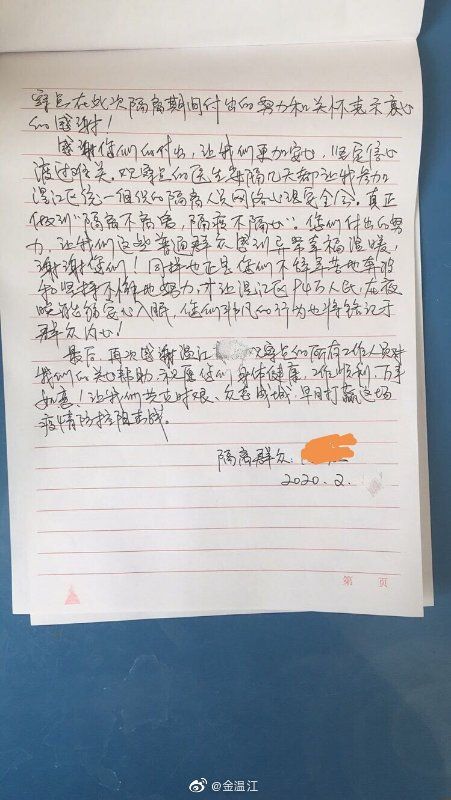 察点在此次隔离期间付出的努力和关怀表示衷心
的感谢！
感谢您们的付出，让我们更加安心，坚定信心
渡过难关。观察点的医生每隔几天都让我参加
温江区统一组织的隔离人员网络心理安全会。真正
做到“隔离不隔爱，隔疫不隔心”。您们付出的努
力，让我们这些普通群众感到异常幸福温暖，
谢谢您们！同样也正是您们不辞辛苦地奔波
和坚持不懈地努力，才让温江区 万人民，在夜
晚能够安心入眠，您们非凡的行为也将铭记于
群众内心！
最后，再次感谢温江 观察点的所有工作人员对
我们的关心帮助，祝愿你们身体健康，工作顺利，万事
如意！让我们共克时艰、众志成城，早日打赢这场
疫情防控阻击战。
隔离群众：
2020.2.
第 页
@金温江